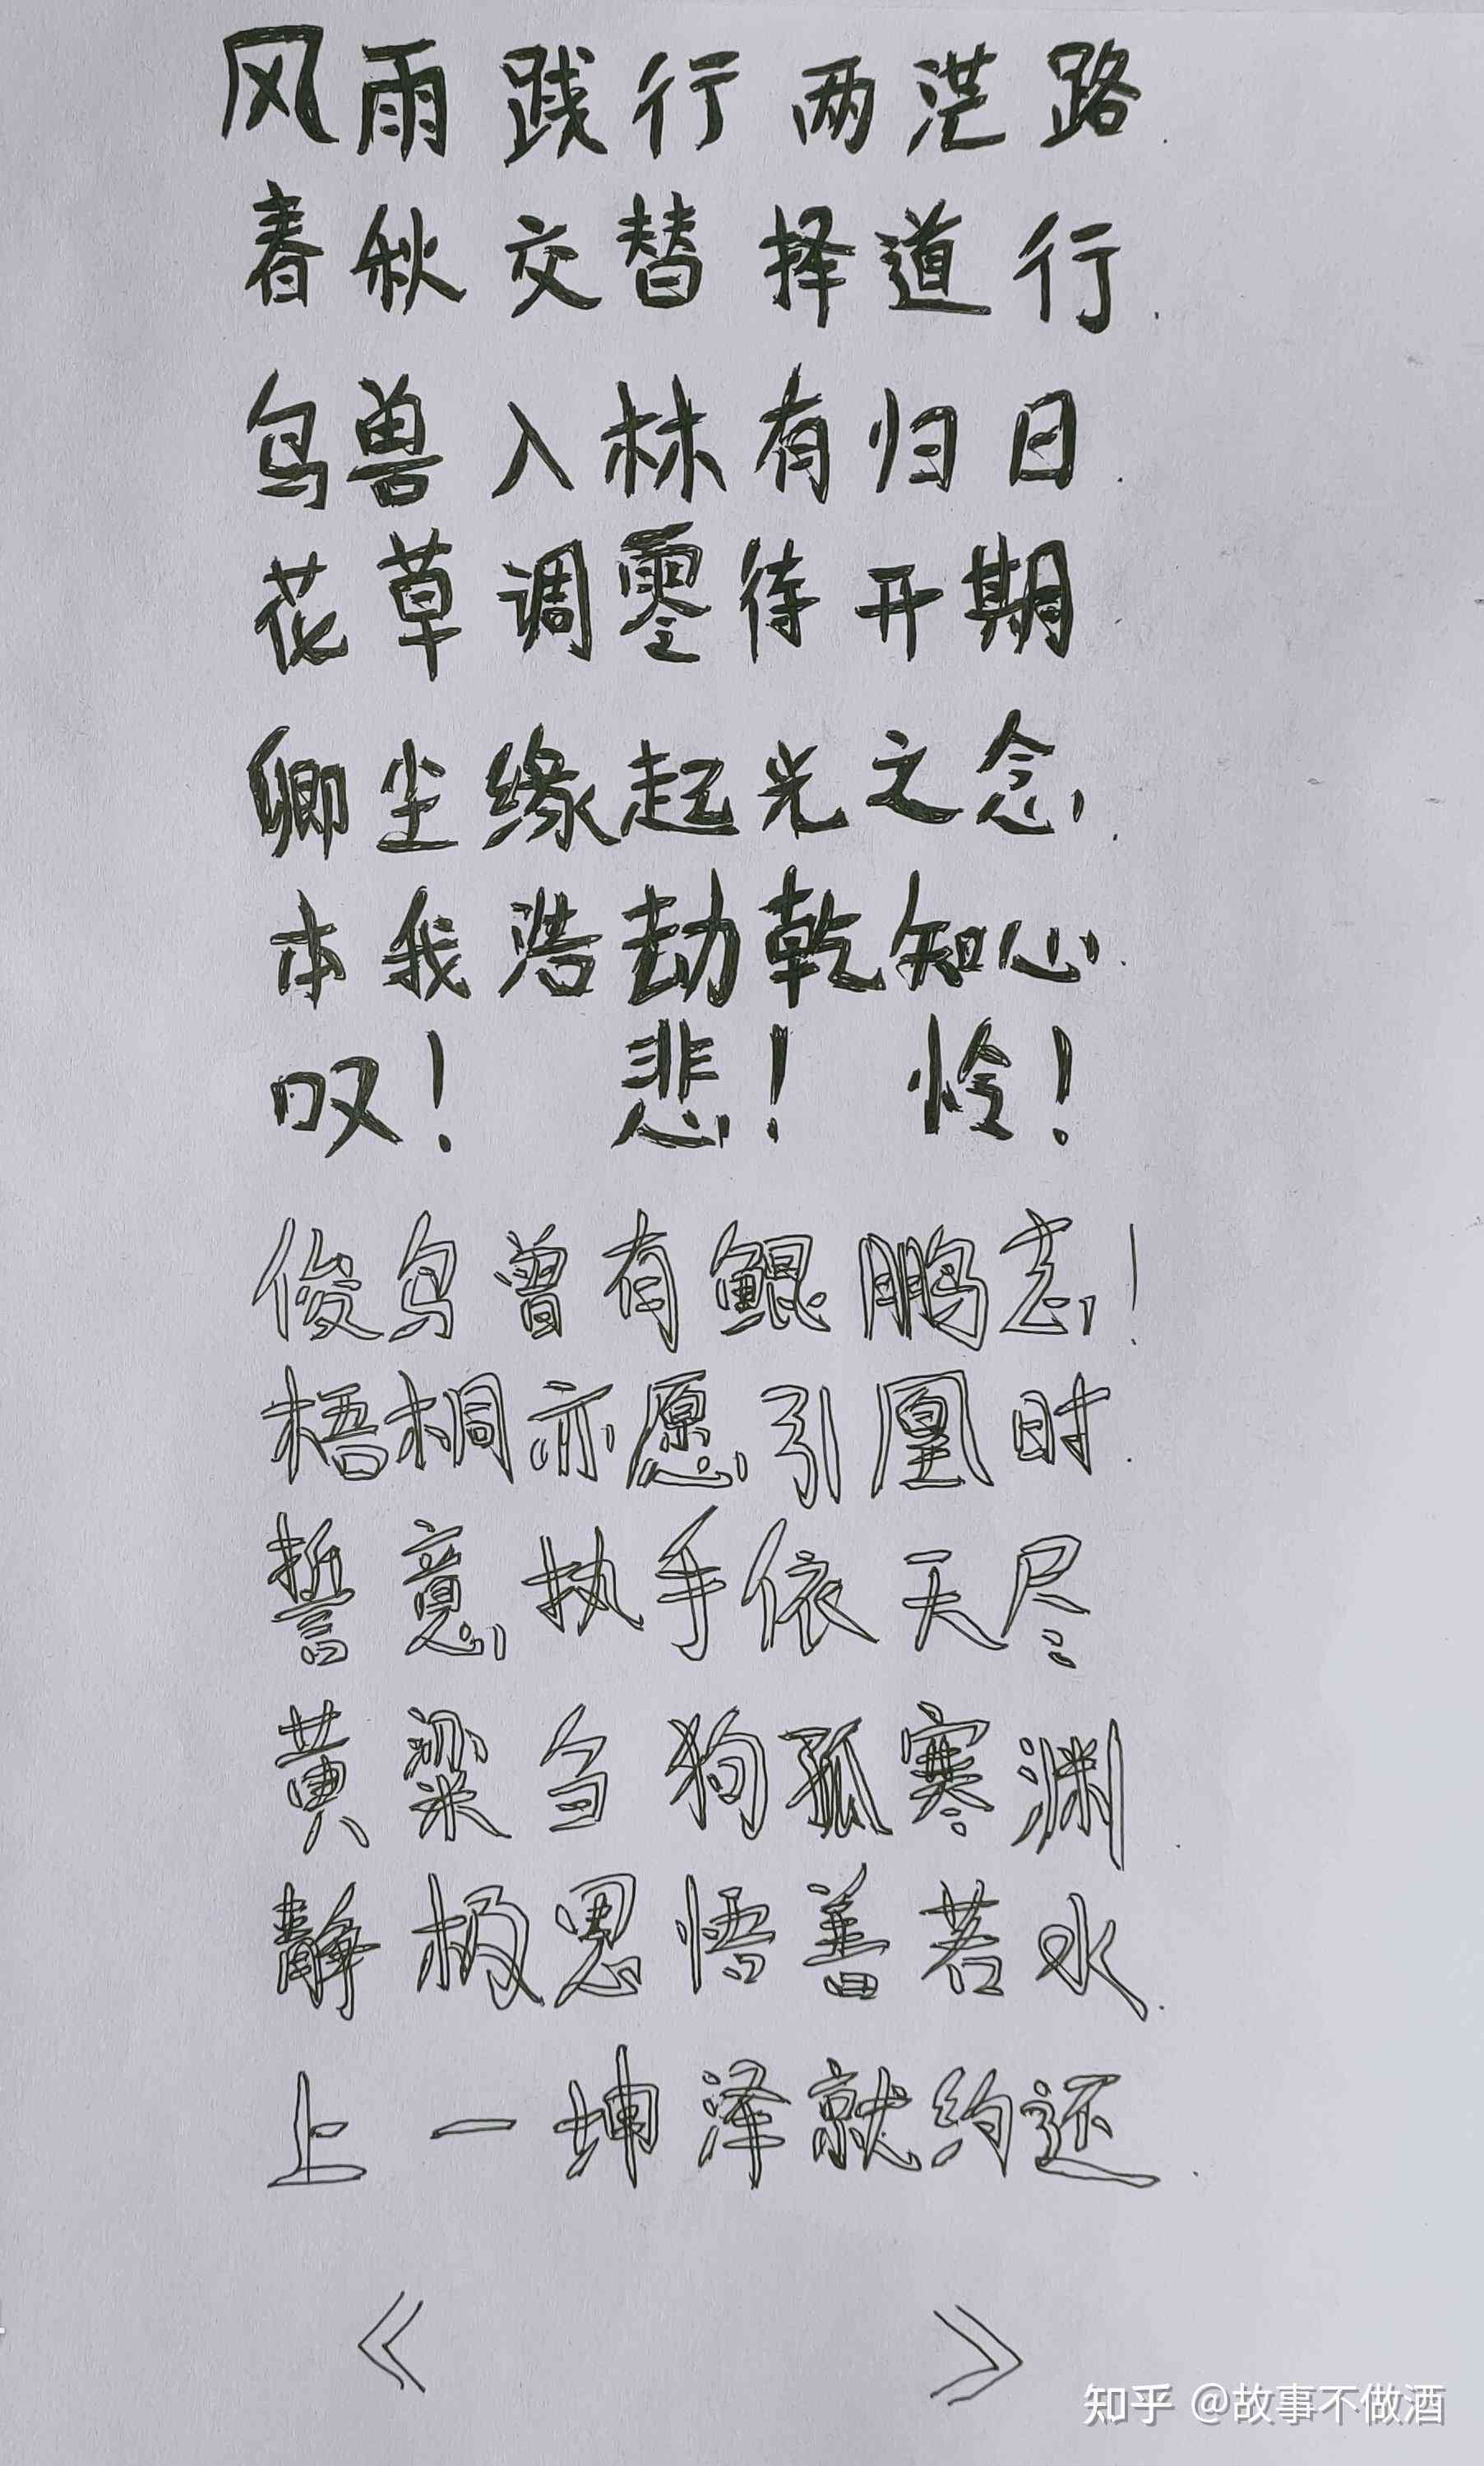 风雨践行两茫路.
春秋交替择道行.
鸟兽入林有归日.
花草调零待开期
卿尘缘起光之念.
本我浩劫乾知心.
叹! 悲! 怜!
俊鸟曾有鲲鹏志!
梧桐亦愿引凰时.
誓意执手依天尽
黄粱刍狗孤寒渊.
静极思悟善若水.
上一坤泽就约还.
《 》
知乎 @故事不做酒